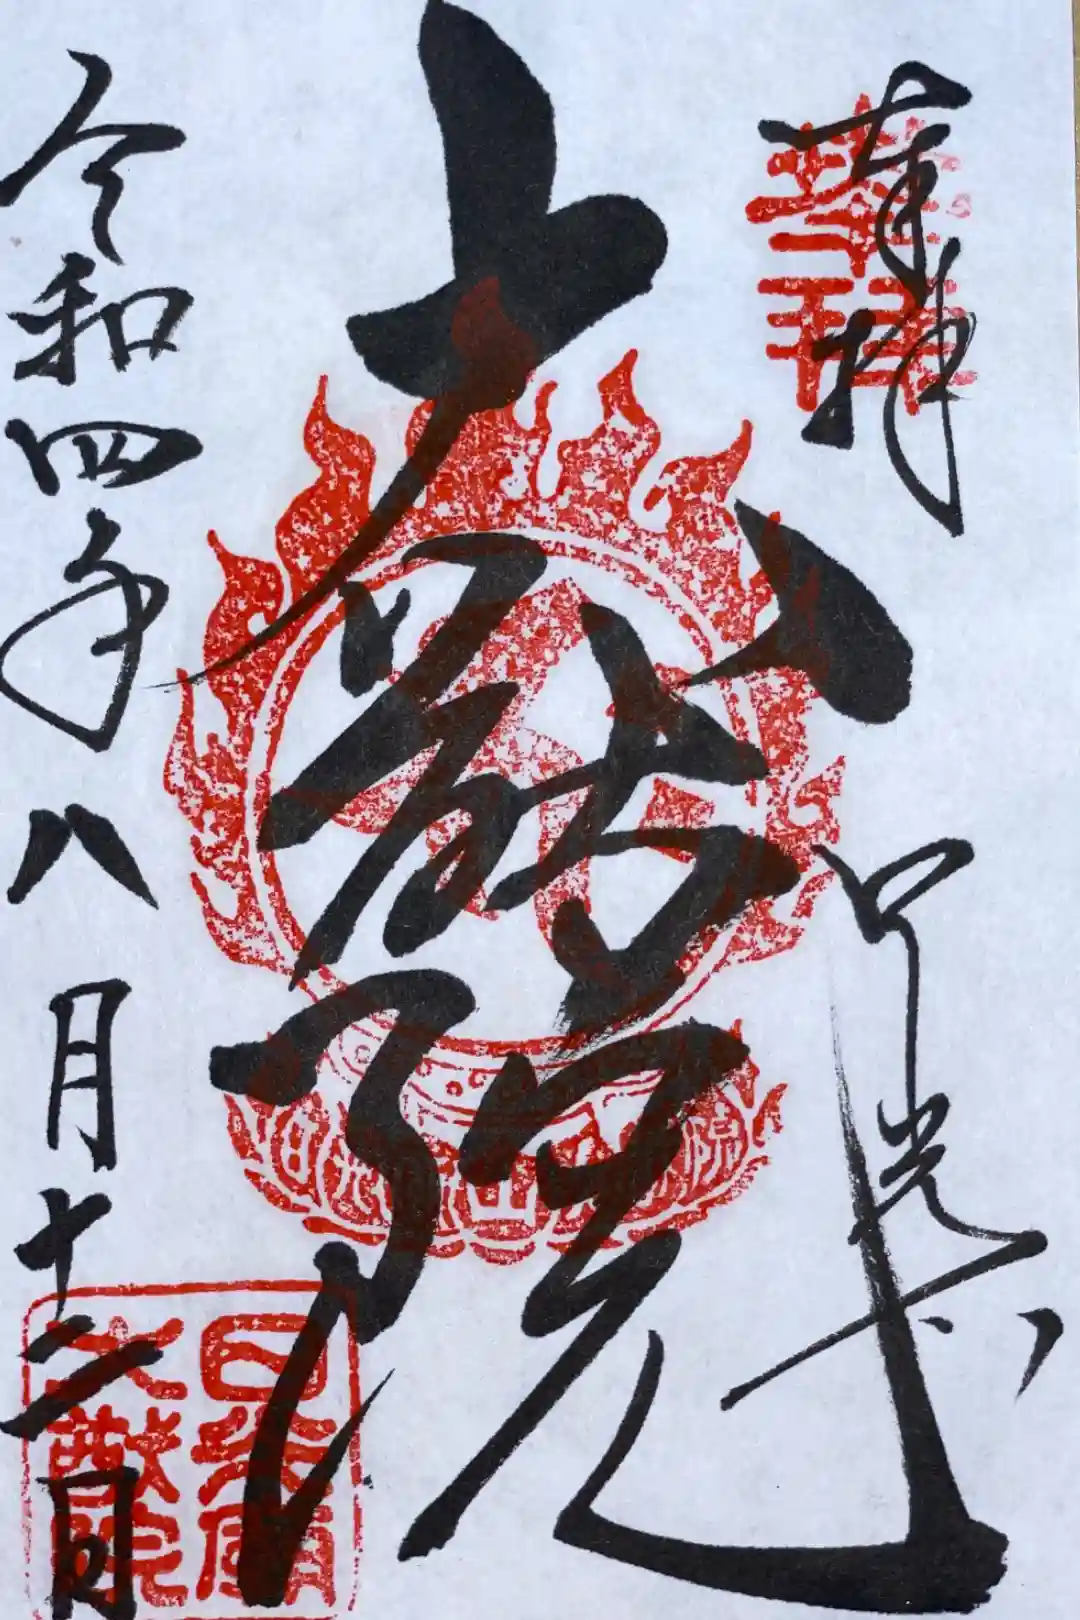 奉拝
日光
大猷院
令和四年八月十二日
日光廟
大猷院